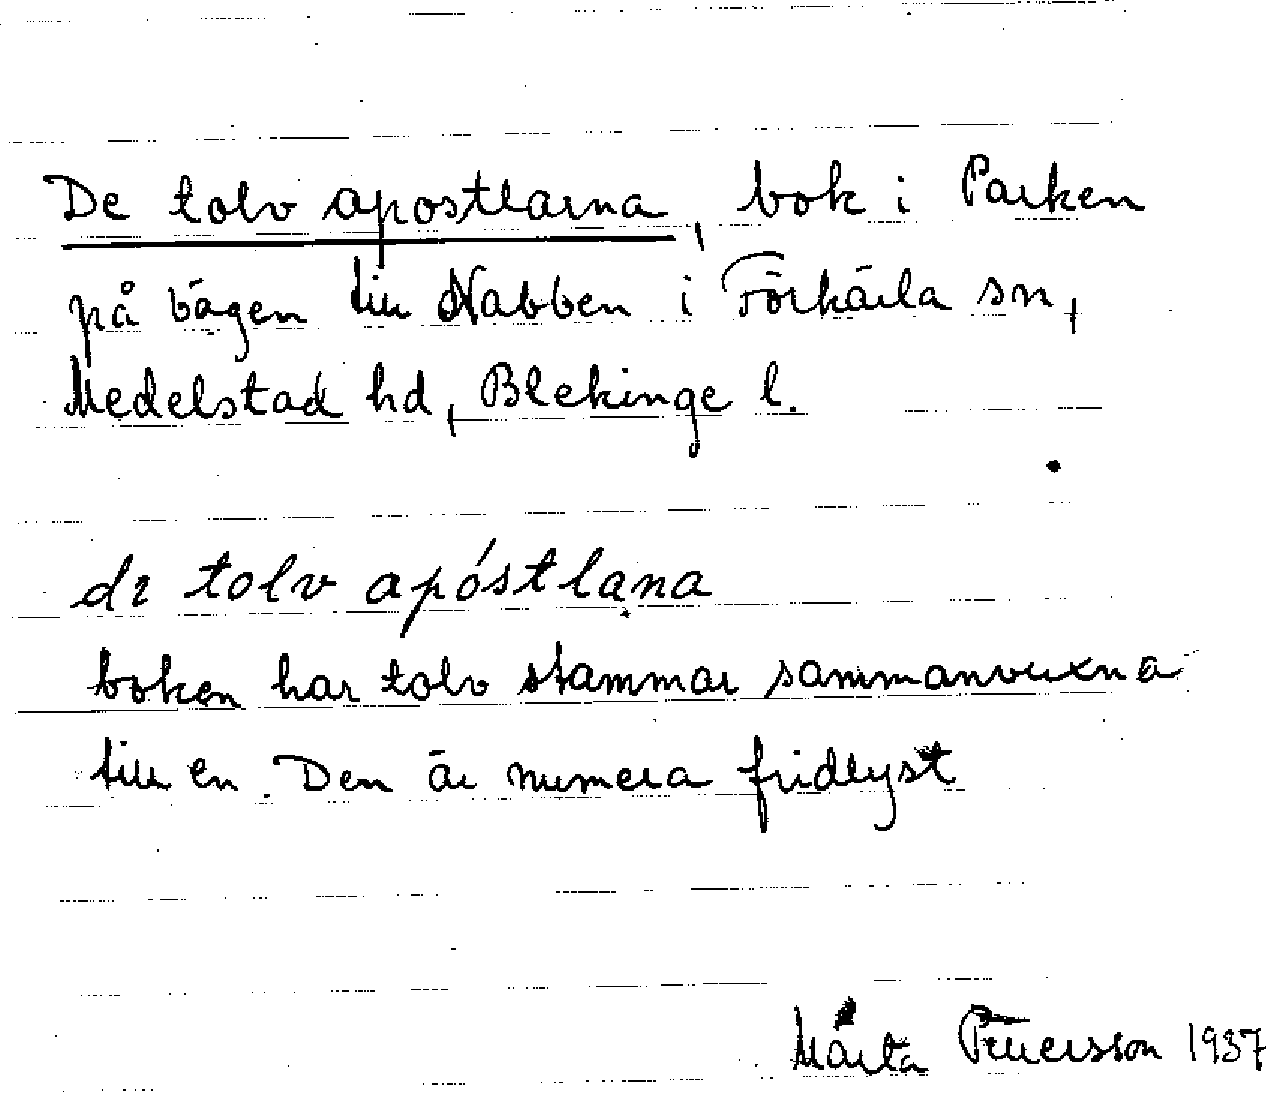 De tolv apostlarna, bok i Parken
på vägen till Nabben i Förkärla sn,
Medelstad hd, Blekinge l.
de tolv apóstlana
boken har tolv stammar sammanvuxna
till en. Den är numera fridlyst
Märta 1937